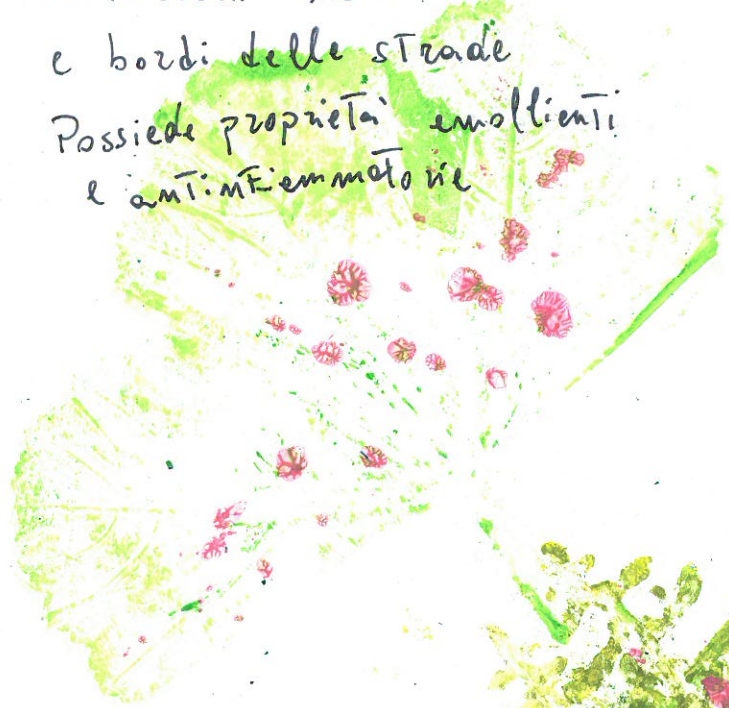 e bordi delle strade
Possiede proprietà emollienti
e antinfiammatorie